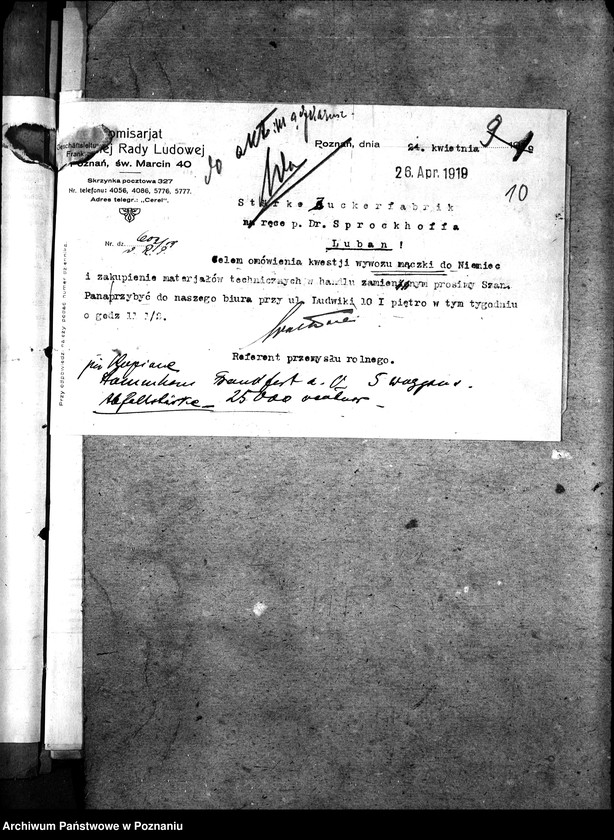 do akt.
omisarjat
Geschäftsleitu
ej Rady Ludowej
Frank
Poznań, dnia 24. kwietnia
Poznań, św. Marcin 40
26. Apr. 1919
Skrzynka pocztowa 327
10
Nr. telefonu: 4056, 4086, 5776, 5777.
Adres telegr.: „Cerel".
Stärke Zuckerfabrik
na ręce p. Dr. Sprockhoffa
Nr. dz.
Luban !
Celem omówienia kwestji wywozu mączki do Niemiec
i zakupienie materjałów technicznych w handlu zamiennym prosimy Szan.
Pana przybyć do naszego biura przy ul. Ludwiki 10 I piętro w tym tygodniu
o godz 11 1/2.
Referent przemysłu rolnego.
Frankfurt a. O. 5 waggons.
25000
Przy odpowiedzi należy podać numer dziennika.
Archiwum Państwowe w Poznaniu